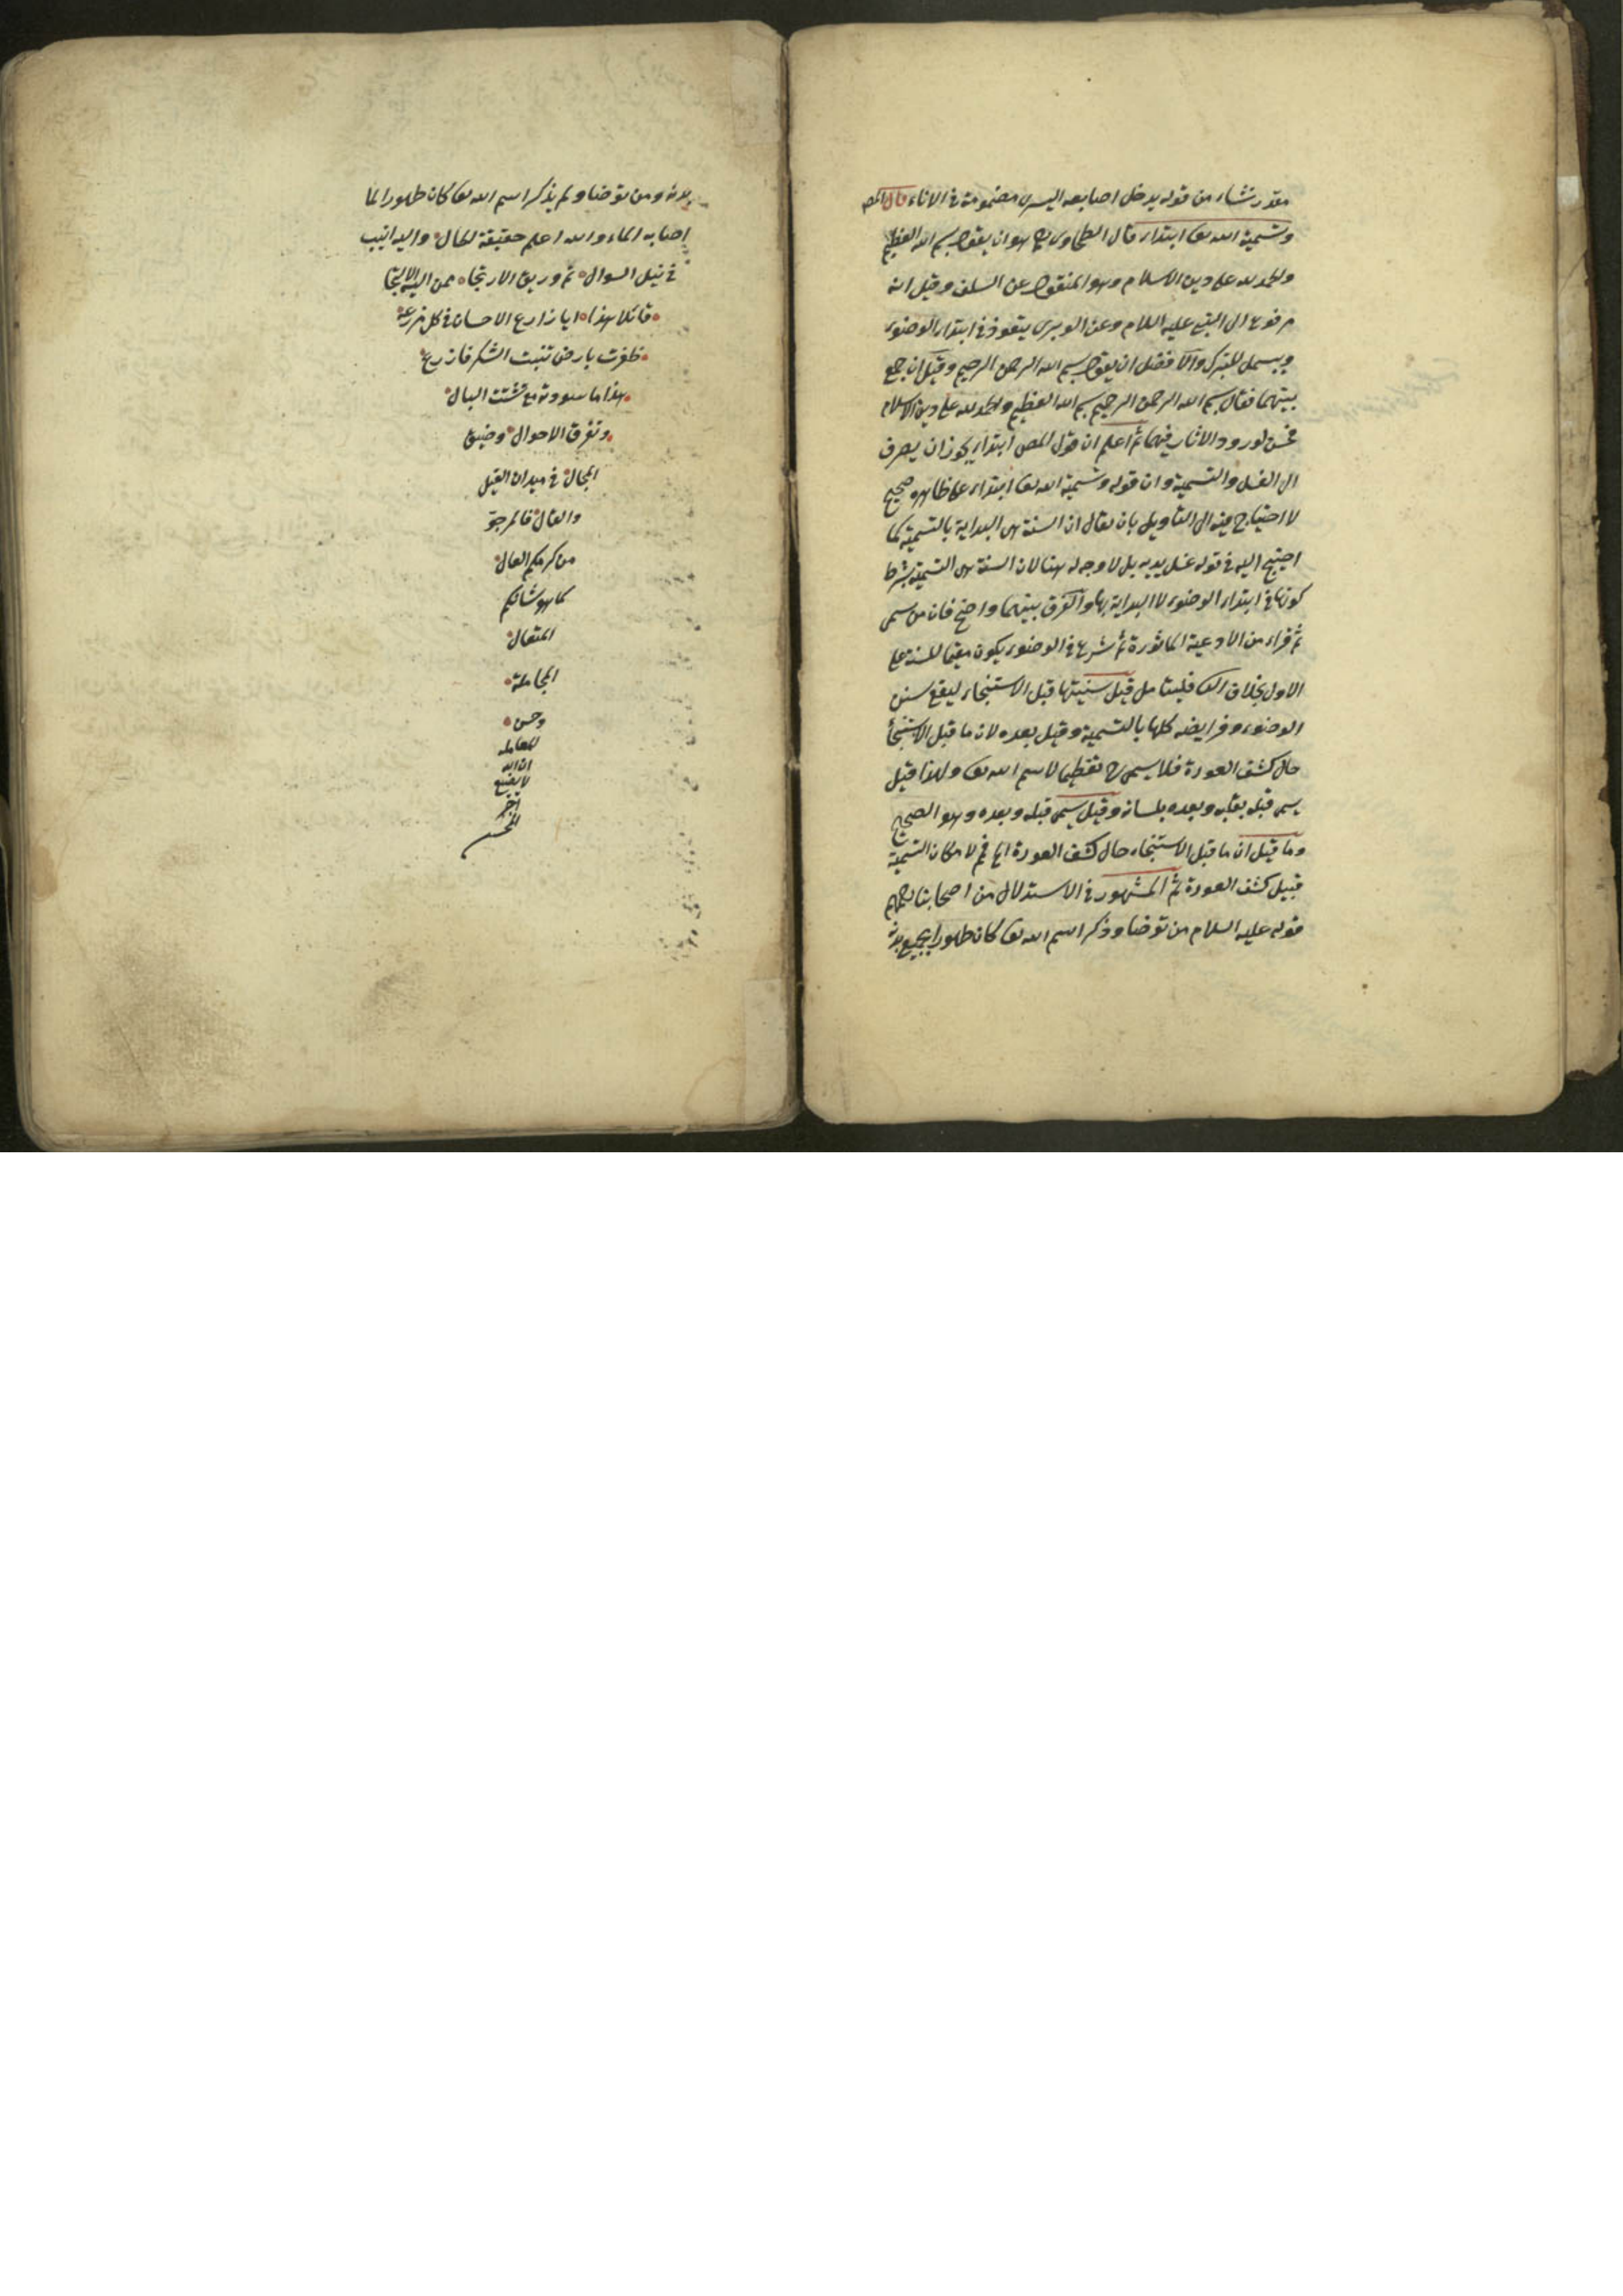 مقدر نشاء من قوله يدخل اصابعه اليسرى مضمومة فى الاناء قال المص
وتسمية الله تعا ابتداء قال الطحاوى رح هو ان يقول بسم الله العظيم
والحمد لله على دين الاسلام وهو المنقول عن السلف وقيل انه
مرفوع الى النبى عليه السلام وعن الوبرى يتعوذ فى ابتداء الوضوء
ويبسمل للتبرك والافضل ان يقول بسم الله الرحمن الرحيم وقيل ان جمع
بينهما فقال بسم الله الرحمن الرحيم بسم الله العظيم والحمد لله على دين الاسلام
فحسن لورود الاثار فيهما ثم اعلم ان قول المص ابتداء يجوز ان يصرف
الى الغسل والتسمية وان قوله وتسمية الله تعا ابتداء على ظاهره صحيح
لا احتياج فيه الى التأويل بان يقال ان السنة هى البداية بالتسمية كما
احتيج اليه فى قوله غسل يديه بل لا وجه له هنا لان السنة هى التسمية بشرط
كونها فى ابتداء الوضوء لا البداية بها والفرق بينهما واضح فان من سمى
ثم قراء من الادعية الماثورة ثم شرع فى الوضوء يكون مقيما للسنة على
الاول بخلاف الثا فليتامل قيل سنيتها قبل الاستنجاء ليقع سنن
الوضوء وفرايضه كلها بالتسمية وقيل بعده لان ما قبل الاستنجأ
حال كشف العورة فلا يسمى ح تعظيما لاسم الله تعا ولهذا قيل
يسمى قبله بقلبه وبعده بلسانه وقيل يسمى قبله وبعده وهو الصحيح
وما قيل ان ما قبل الاستنجاء حال كشف العورة لامكان التسمية
قبيل كشف العورة ثم المشهور فى الاستدلال من اصحابنا رحمهم
قوله عليه السلام من توضا وذكر اسم الله تعا كان طهورا لجميع بدنه
بدنه ومن توضا ولم يذكر اسم الله تعا كان طهورا لما
اصابه الماء والله اعلم حقيقة الحال واليه انيب
فى نيل السوال ثم وريق الارتجا ممن اليه الالتجا
قائلا هذا ايا زارع الاحسان فى كل مزرعة
ظفرت بارض تنبت الشكر فازرع
هذا ما سودته مع تشتت البال
وتفرق الاحوال وضيق
المجال فى ميدان القيل
والقال فالمرجو
من كرمكم العال
كما هو شانكم
المتعال
المجاملة
وحسن
المعامله
ان الله
لا يضيع
اجر
المحسن